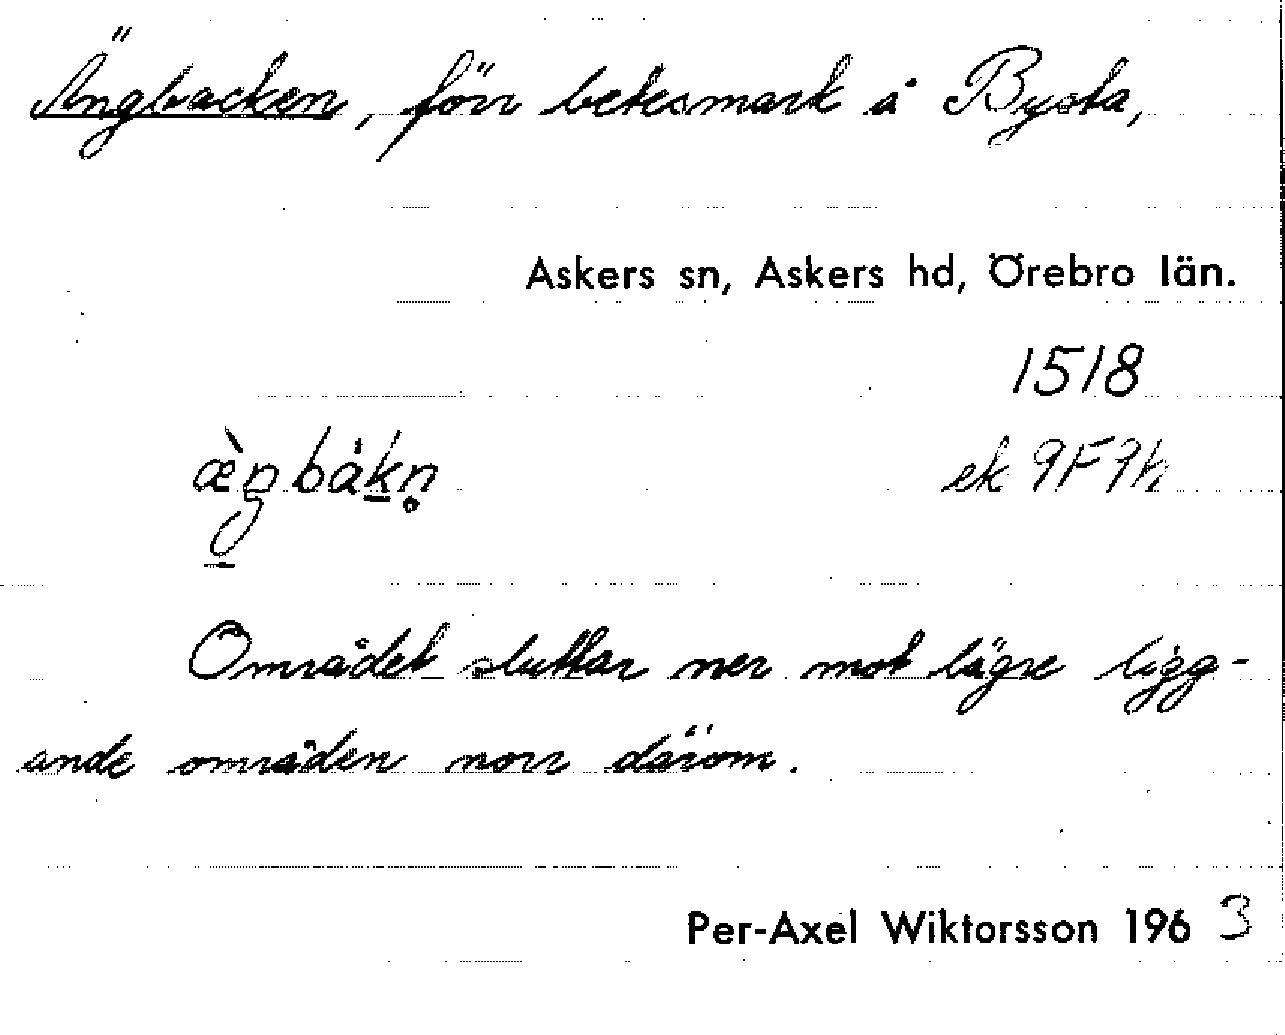 Ängbacken, förr betesmark å Bysta,
Askers sn, Askers hd, Örebro län.
1518
æ̀ŋbàkn̥ ek 9F9h
Området sluttar ner mot lägre ligg-
ande områden norr därom.
Per-Axel Wiktorsson 1963